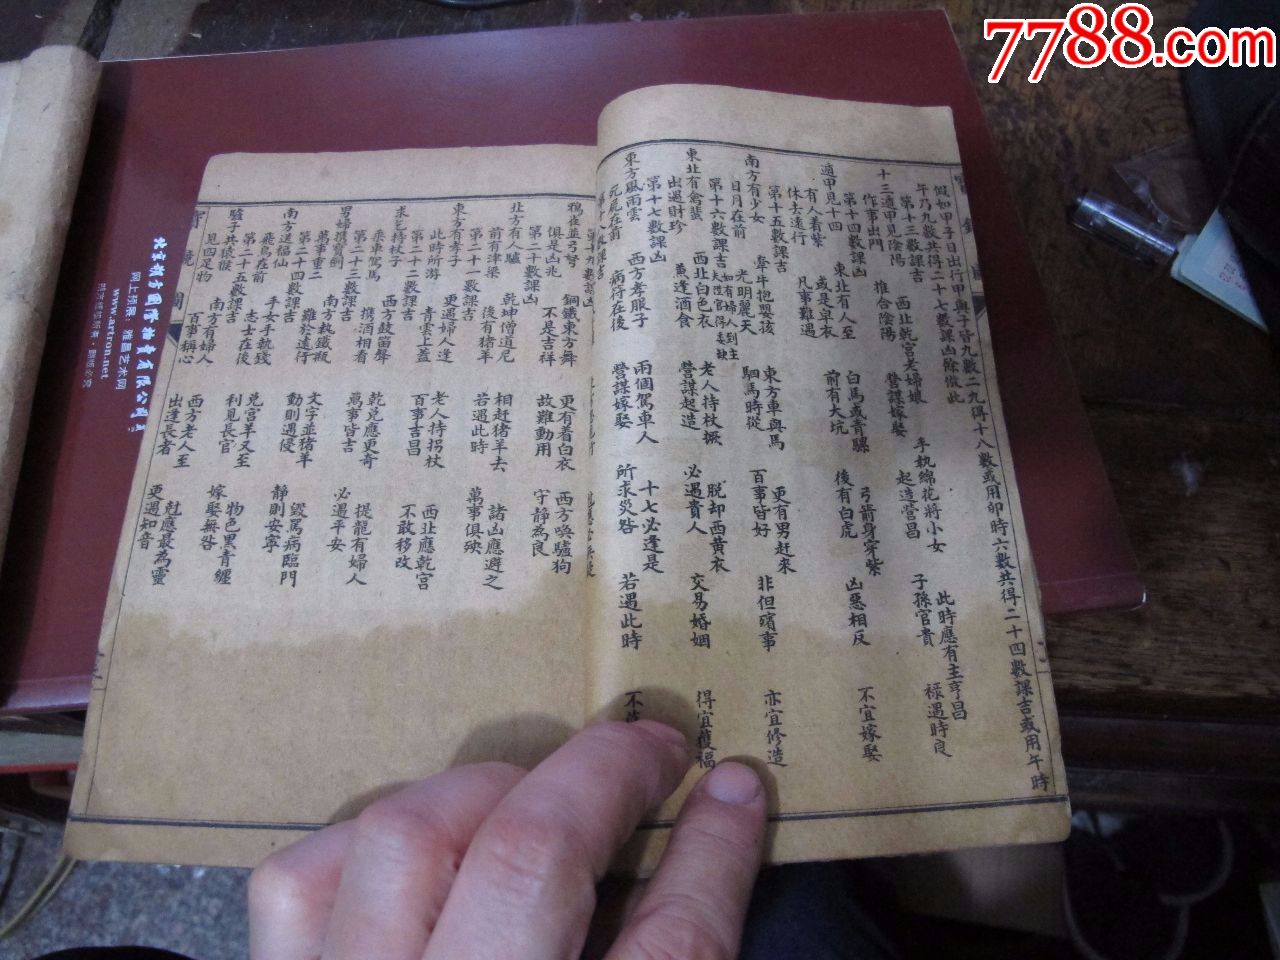 7788.com
假如甲子日出行甲與子皆九數二九得十八數或用卯時六數共得二十四數課吉或用午時
午乃九數共得二十七數課凶餘倣此
第十三數課吉 西北乾宮老婦娘 手執綿花將小女 此時應有主亨昌
作事出門 推合陰陽 營謀嫁娶 起造營昌 子孫官貴 祿遇時良
十三遁甲見陰陽
第十四數課凶 東北有人至 白馬或青騾 弓箭身穿紫 凶惡相反 不宜嫁娶
遁甲見十四 有人着紫 或是皁衣 前有大坑 後有白虎
休去遠行 凡事難遇
第十五數課吉 牽牛抱嬰孩 東方車與馬 更有男赶來 非但殯事 亦宜修造
南方有少女 日月在前 光明麗天 駟馬時從 百事皆好
第十六數課吉 西北白色衣 老人持杖撅 脱却西黄衣 交易婚姻 得宜獲福
東北有禽蜚 出遇財珍 黄逢酒食 營謀起造 必遇貴人
第十七數課凶 西方孝服子 兩個駕車人 十七必逢是 若遇此時
東方風雨雲 病符在後 營謀嫁娶 所求災咎
鴉雀並弓弩 銅鐵東方舞 更有着白衣 西方喚驢狗
俱是凶兆 不是吉祥 故難動用 守静為良
第二十數課凶
北方有人驢 乾坤僧道尼 相赶猪羊去 諸凶應避之
前有津梁 後有猪羊 若遇此時 萬事俱殃
第二十一數課吉
東方有孝子 更遇婦人逢 老人持拐杖 西北應乾宮
此時所游 青雲上蓋 百事吉昌 不敢移改
第二十二數課吉
求乞持杖子 西方鼓笛聲 乾兑應更奇 提龍有婦人
乘車駕馬 携酒相看 萬事皆吉 必遇平安
第二十三數課吉
男婦携寶劍 南方執鐵瓶 文字並猪羊 毀罵病臨門
萬事重二 難於遠行 動則遇侵 静則安寧
第二十四數課吉
南方送福仙 手女手執殘 兑宮羊又至 物色黑青纏
飛鳥在前 志士在後 利見長官 嫁娶無咎
第二十五數課吉
驢子共猿猴 南方有婦人 西方老人至 尅應最為靈
見四足物 百事稱心 出逢長者 更遇知音
寶鏡圖
網上預展：雅昌艺术网
www.artron.net